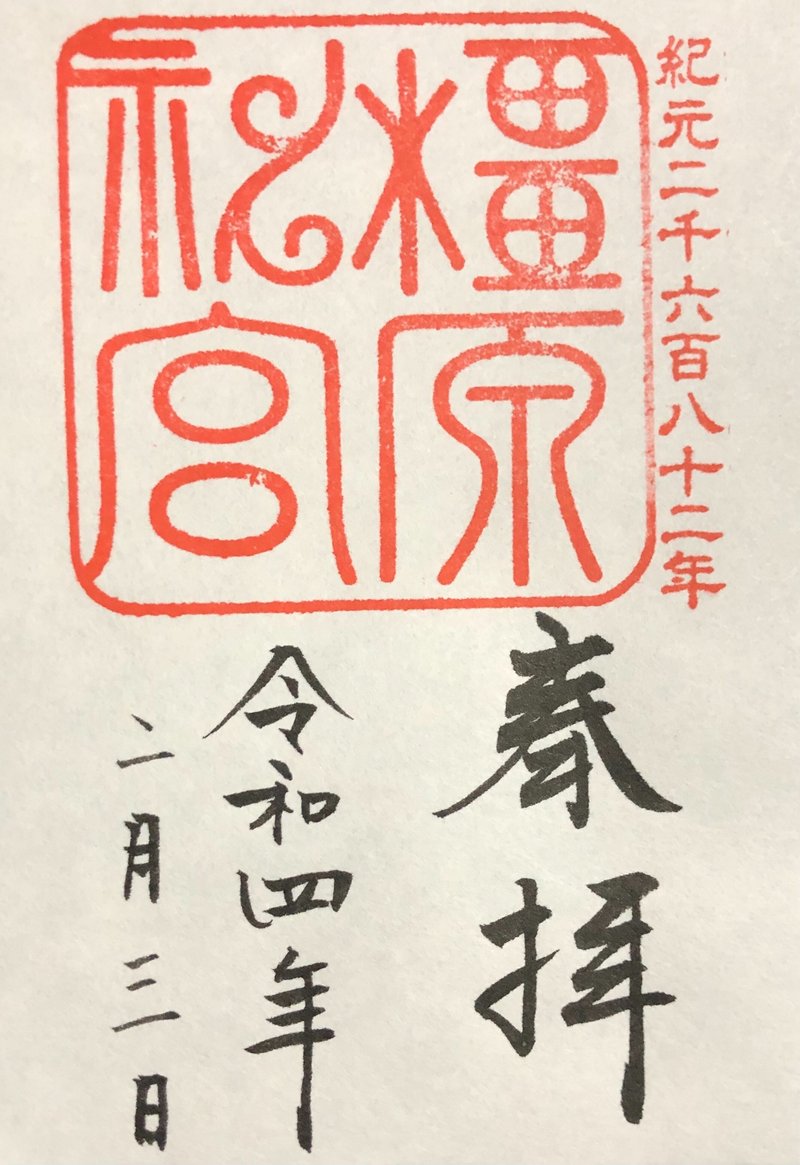 紀元二千六百八十二年
橿原
神宮
奉拝
令和四年
二月三日